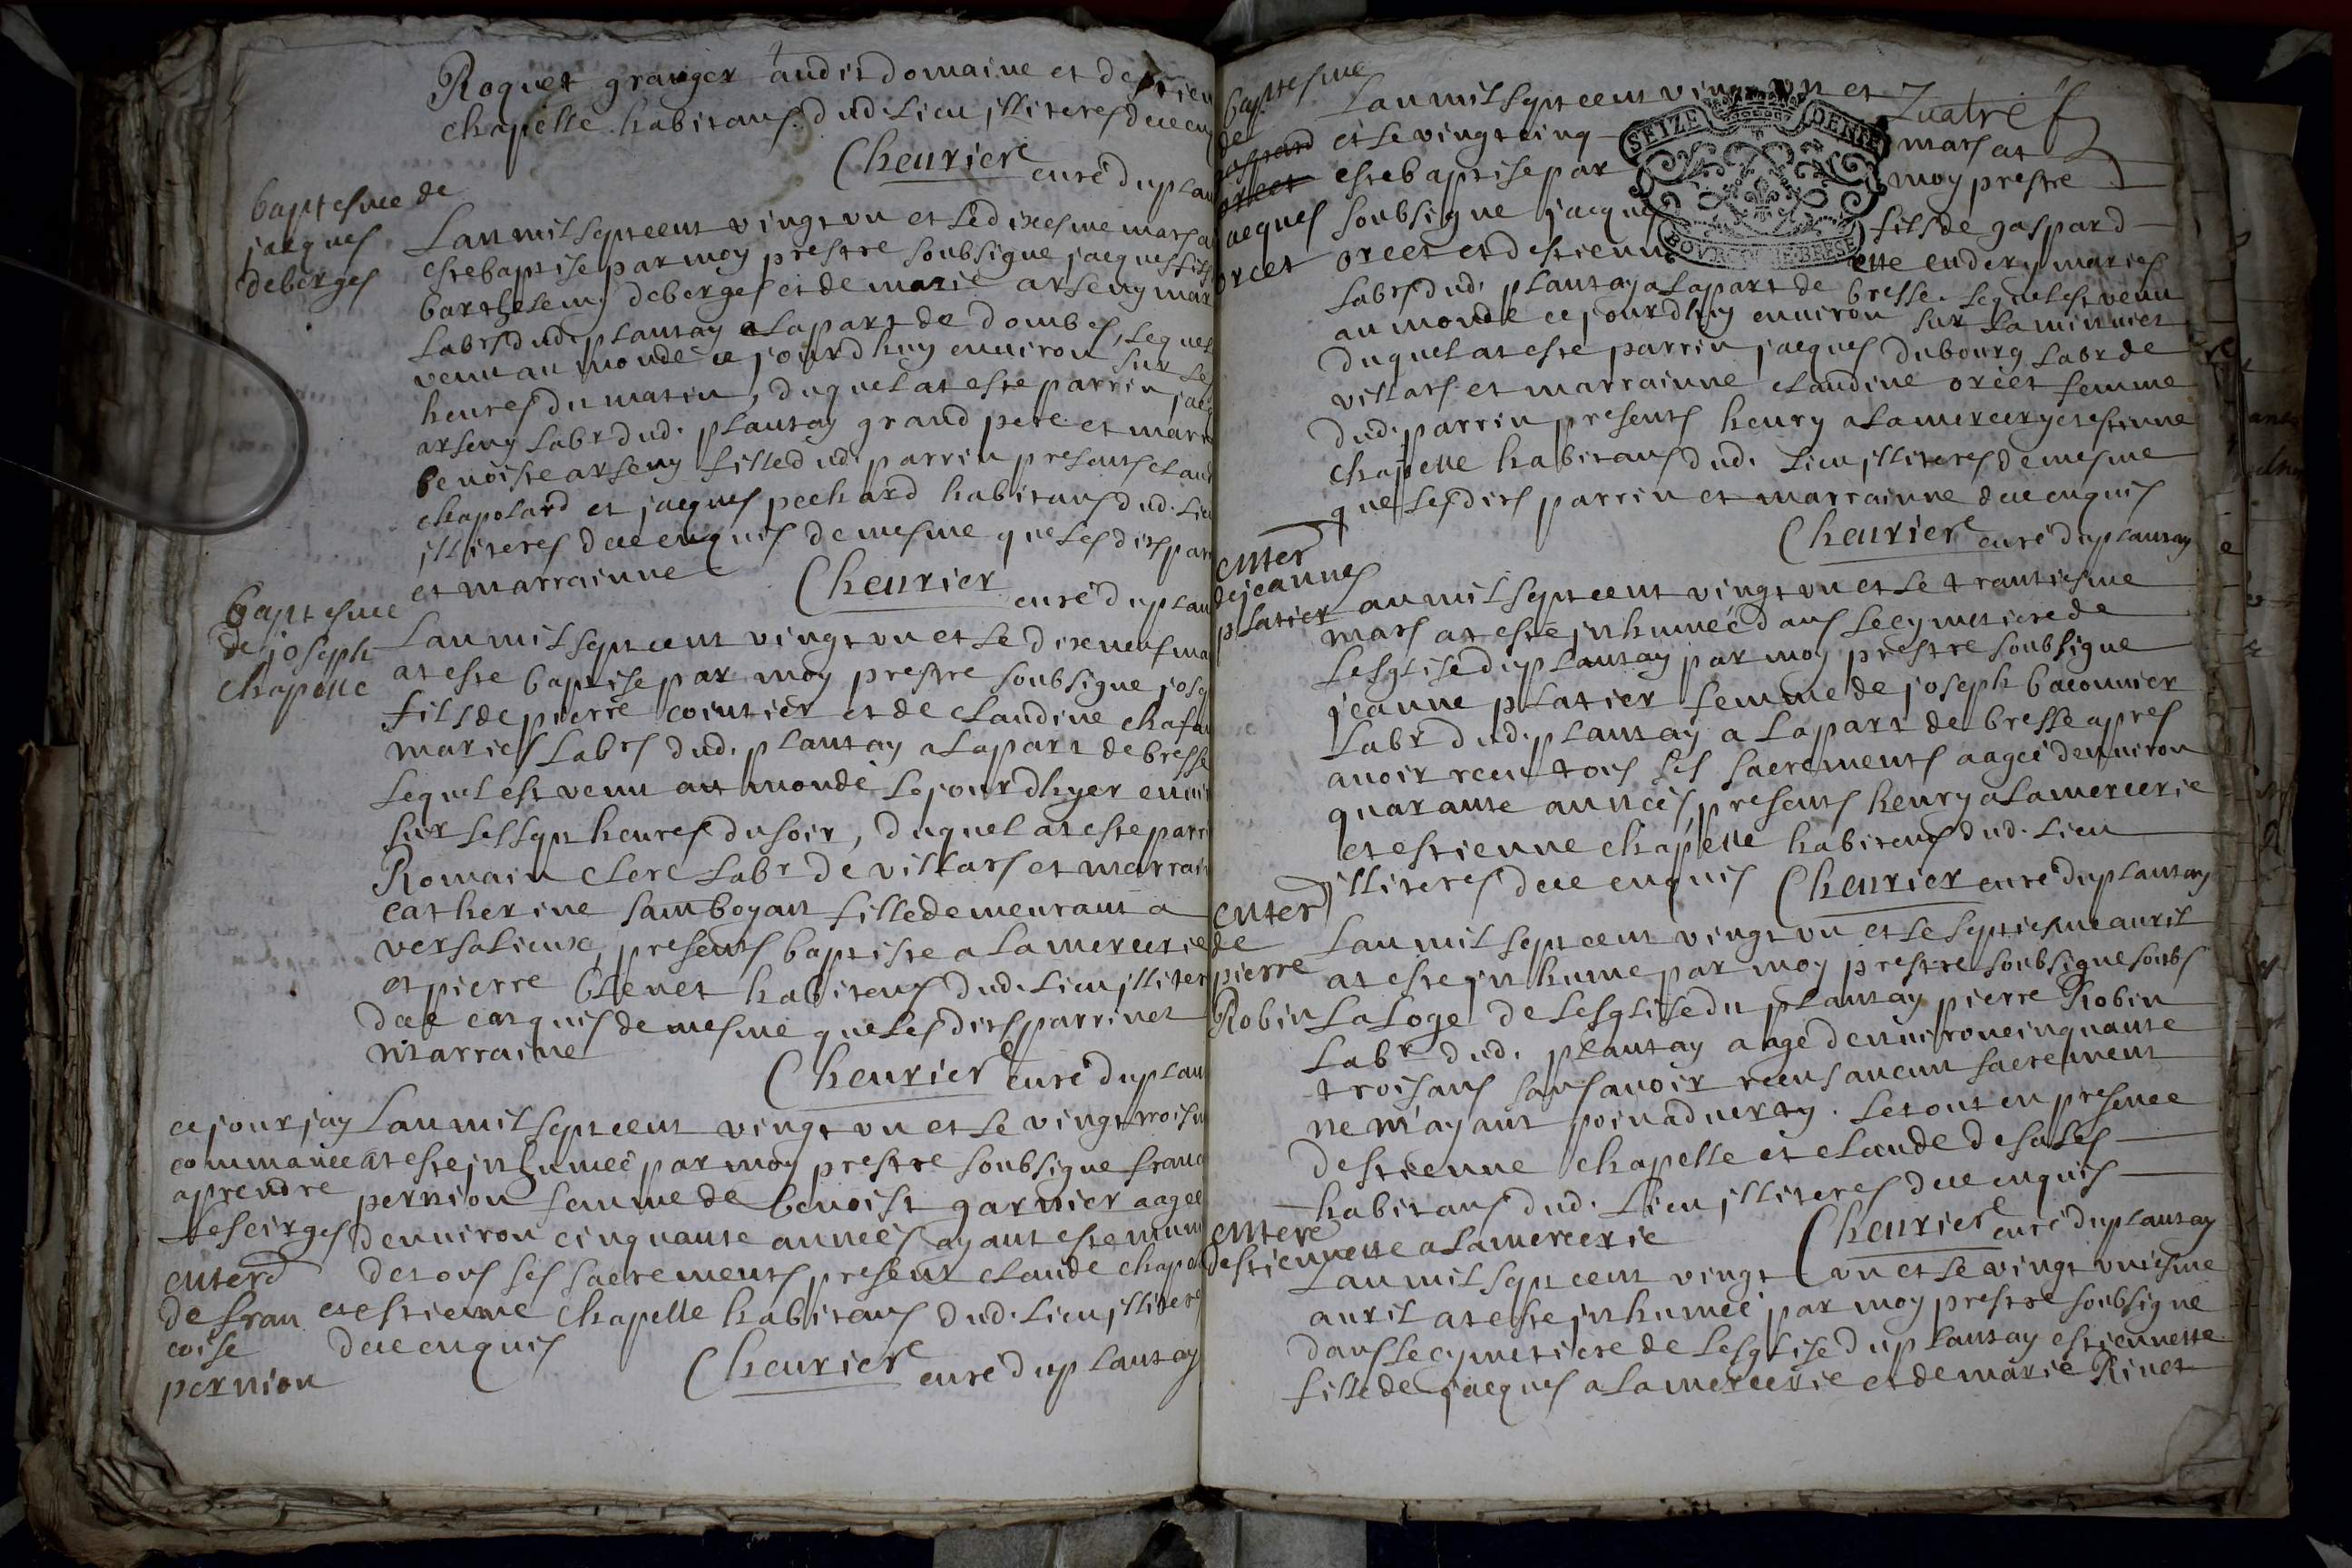 Roquet granger audit domaine et destien
chapelle habitans dud. lieu illiteres deue en
Cheurier curé du plan
baptesme de
jacques
deberges
Lan mil sept cent vingt vn et le dixesme mars a
este baptise par moy prestre soubsigne jacques fils
barthelemy deberges et de marie arseny mar
labrs dud. plantay a la part de dombes, lequel
venu au monde ce jourdhuy enuiron sur les
heures du matin, duquel at este parrin jacq
arseny labr dud. plantay grand pere et marr
benoiste arseny fille dud. parrin presents claud
chapolard et jacques pechard habitans dud. lieu
illiteres deue enquis de mesme que lesdits par
et marrainne
Cheurier curé du plan
baptesme
de joseph
chapelle
Lan mil sept cent vingt vn et le dixneuf ma
at este baptise par moy prestre soubsigne jos
fils de pierre cointier et de claudine
maries labrs dud. plantay a la part de bresse
lequel est venu au monde le jourdhyer enuir
sur les sept heures du soir, duquel at este parr
Romain clerc labr de villars et marrain
catherine samboyant fille demeurant a
versalieux, presents baptiste alamercerie
et pierre blenet habitans dud. lieu illiter
deue enquis de mesme que lesdits parrin et
marraine
Cheurier curé du plan
ce jour jay
commancé
a prendre
les cirges
enterd
de fran
coise
pernion
Lan mil sept cent vingt vn et le vingt trois m
at este inhumeé par moy prestre soubsigne franc
pernion femme de benoist garnier aageé
denuiron cinquante anneés ayant este muni
de tous ses sacrements, present claude chapo
et estienne chapelle habitans dud. lieu illitere
deue enquis
Cheurier curé du plantay
baptesme
de
gaspard
orcet
jacques
orcet
Quatre f
SEIZE DENIE
BOVRG EN BRESSE
Lan mil sept cent vingt vn et
et le vingt cinq mars at
este baptise par moy prestre
soubsigne jacques fils de gaspard
orcet et destiennette maries
labrs dud. plantay a la part de bresse. lequel est venu
au monde ce jourdhuy enuiron sur la minuict
duquel at este parrin jacques dubourg labr de
villars et marrainne claudine orcet femme
dud. parrin presents henry alamercery et estienne
chapelle habitans dud. lieu illiteres de mesme
que lesdits parrin et marrainne deue enquis
Cheurier curé du plantay
enter
de jeanne
platier
Lan mil sept cent vingt vn et le trantiesme
mars at esté inhumeé dans le cymetiere de
lesglise du plantay par moy prestre soubsigne
jeanne platier femme de joseph baconnier
labr dud. plantay a la part de bresse apres
auoir receu tous ses sacrements aageé denuiron
quarante anneés, presents henry alamercerie
et estienne chapelle habitans dud. lieu
illiteres deue enquis Cheurier curé du plantay
enterd
de
pierre
Robin
Lan mil sept cent vingt vn et le septiesme auril
at este inhume par moy prestre soubsigne soubs
la loge de lesglise du plantay pierre Robin
labr dud. plantay aage denuiron cinquante
trois ans sans auoir receus aucun sacrement
ne m'ayant poin aduerty. le tout en presence
destienne chapelle et claude desales
habitans dud. lieu illiteres deue enquis
Cheurier curé du plantay
entere
destiennette alamercerie
Lan mil sept cent vingt vn et le vingt vniesme
auril at este inhumeé par moy prestre soubsigne
dans le cymetiere de lesglise du plantay estiennette
fille de jacques alamercerie et de marie Rinet